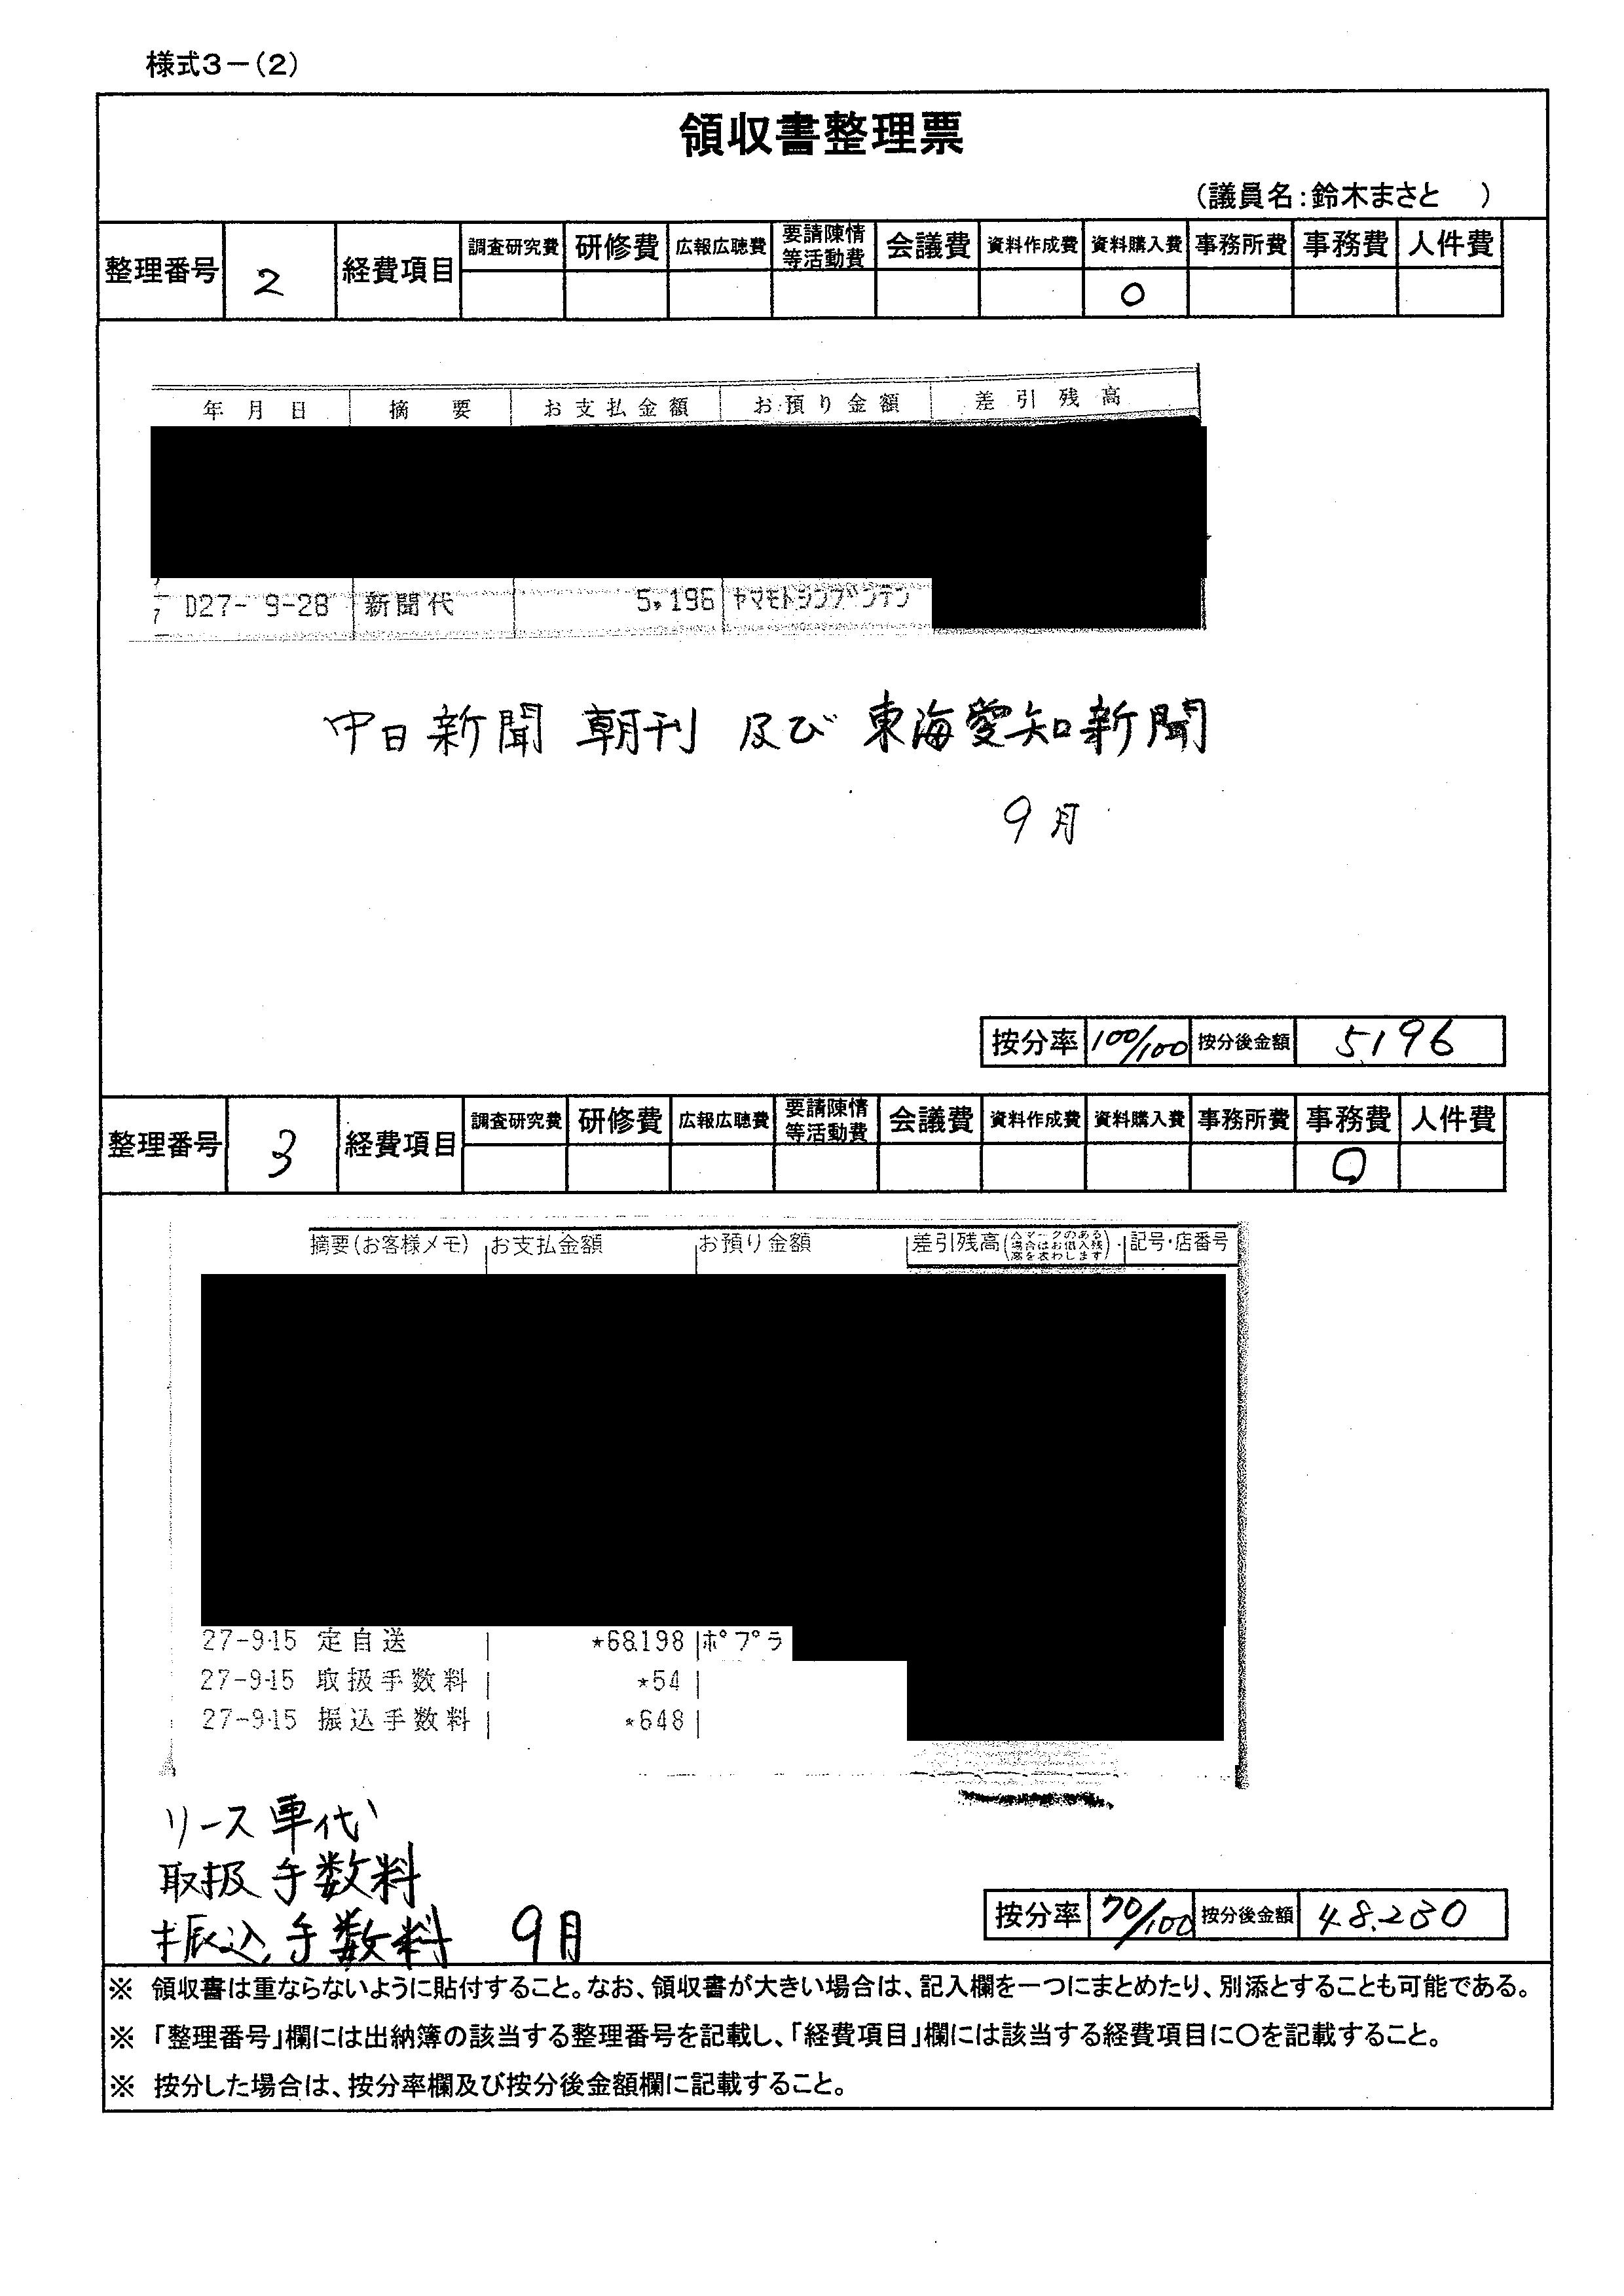 様式3－(2)
領収書整理票
(議員名:鈴木まさと )
整理番号 2 経費項目 調査研究費 研修費 広報広聴費 要請陳情等活動費 会議費 資料作成費 資料購入費 事務所費 事務費 人件費
○
年月日 摘要 お支払金額 お預り金額 差引残高
7 D27- 9-28 新聞代 5,196 ヤマモトシンブンテン
中日新聞 朝刊 及び 東海愛知新聞
9月
按分率 100/100 按分後金額 5,196
整理番号 3 経費項目 調査研究費 研修費 広報広聴費 要請陳情等活動費 会議費 資料作成費 資料購入費 事務所費 事務費 人件費
○
摘要(お客様メモ) お支払金額 お預り金額 差引残高(△マークのある場合はお借入残高を表わします) 記号・店番号
27-9-15 定自送 *68,198 ポプラ
27-9-15 取扱手数料 *54
27-9-15 振込手数料 *648
リース車代
取扱手数料
振込手数料 9月
按分率 70/100 按分後金額 48,230
※ 領収書は重ならないように貼付すること。なお、領収書が大きい場合は、記入欄を一つにまとめたり、別添とすることも可能である。
※ 「整理番号」欄には出納簿の該当する整理番号を記載し、「経費項目」欄には該当する経費項目に○を記載すること。
※ 按分した場合は、按分率欄及び按分後金額欄に記載すること。